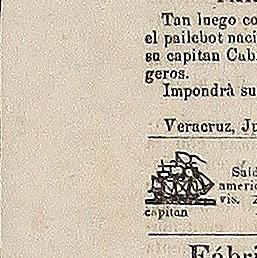 Tan luego co
el pailebot naci
su capitan Cab
geros.
Impondrá su
Veracruz, Ju
Sald
americ
vis.
capitan
Fábri